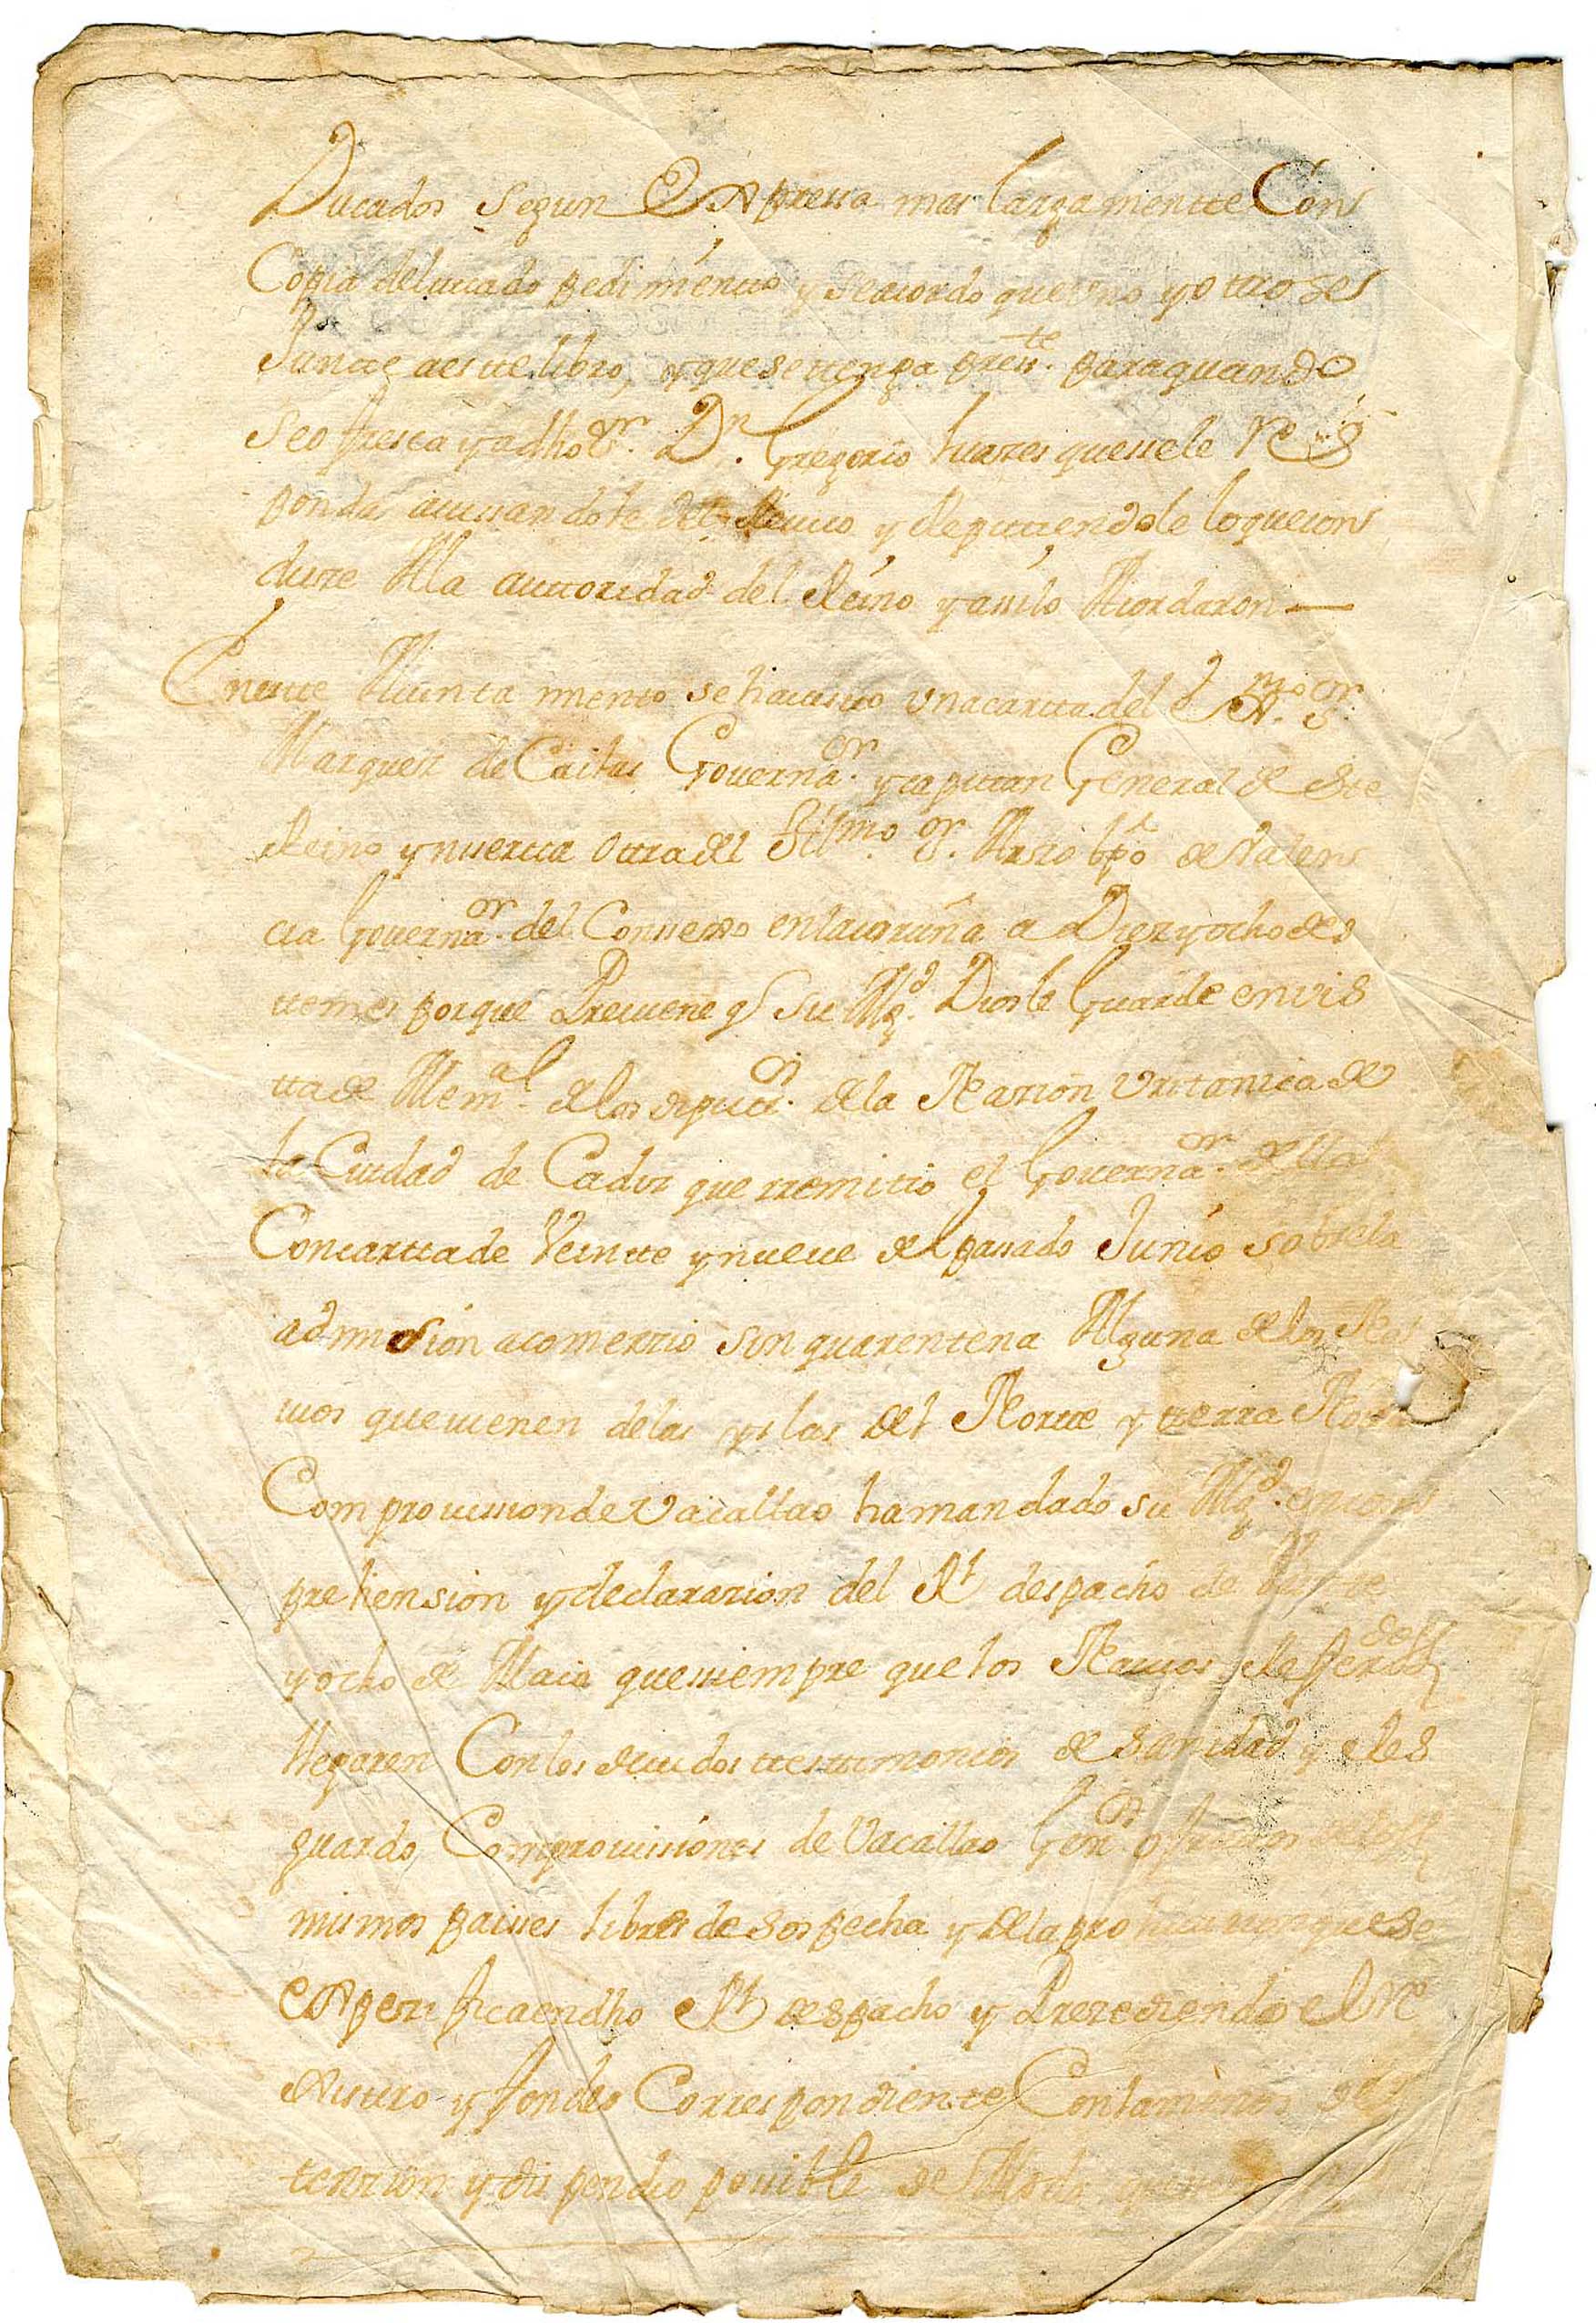 Ducados segun Expressa mas largamentte Con
Copia delcittado pedimento y seacordo queuno yottro se
Juntte aestte libro, y quesettenga press.te paraquando
seofresca yadho Sr. Dn. Gregorio huares quessele Res
ponda acussandole del Reciuo y Repittiendole loquecon
duze Ala auttoridad del Reino yassilo Acordaron —
Enestte Aiuntamiento sehauisto unacartta del Exmo. Sr.
Marques de Cailus Gouernaor. ycapittan General de este
Reino ynsertta ottra del Illmo. Sr. Arzobpo de Valen
cia Gouernaor. del Conssexo enlacoruña a Diezyocho des
ttemes porque Preuiene q Su Mgd. Dios le Guarde envis
tta de Memal. delos diputtos. dela Nazion Vritanica de
la Ciudad de Cadiz que rremitio el Gouernaor. della
Concarttade Veintte ynueue del passado Junio sobrela
admission acomerzio sin quarentena Alguna delos Na
uios queuienen delas yslas del Nortte y tierra Noba
Comprouission de Vacallao hamandado su Mgd. encom
prehension y declarazion del Rl despacho de
yocho de Maio quesiempre que los Nauios Referidos
llegaren Conlos deuidos ttesttimonios de Sanidad y Res
guardo, Comprouissiones de Vacallao
mismos paises libres de sospecha y dela prohiuizion quese
expezificaendho Rl despacho y Prezediendo el Re
xisttro y fondeo Correspondiente Conlamenos de
tenzion y dispendio possible de Modo que